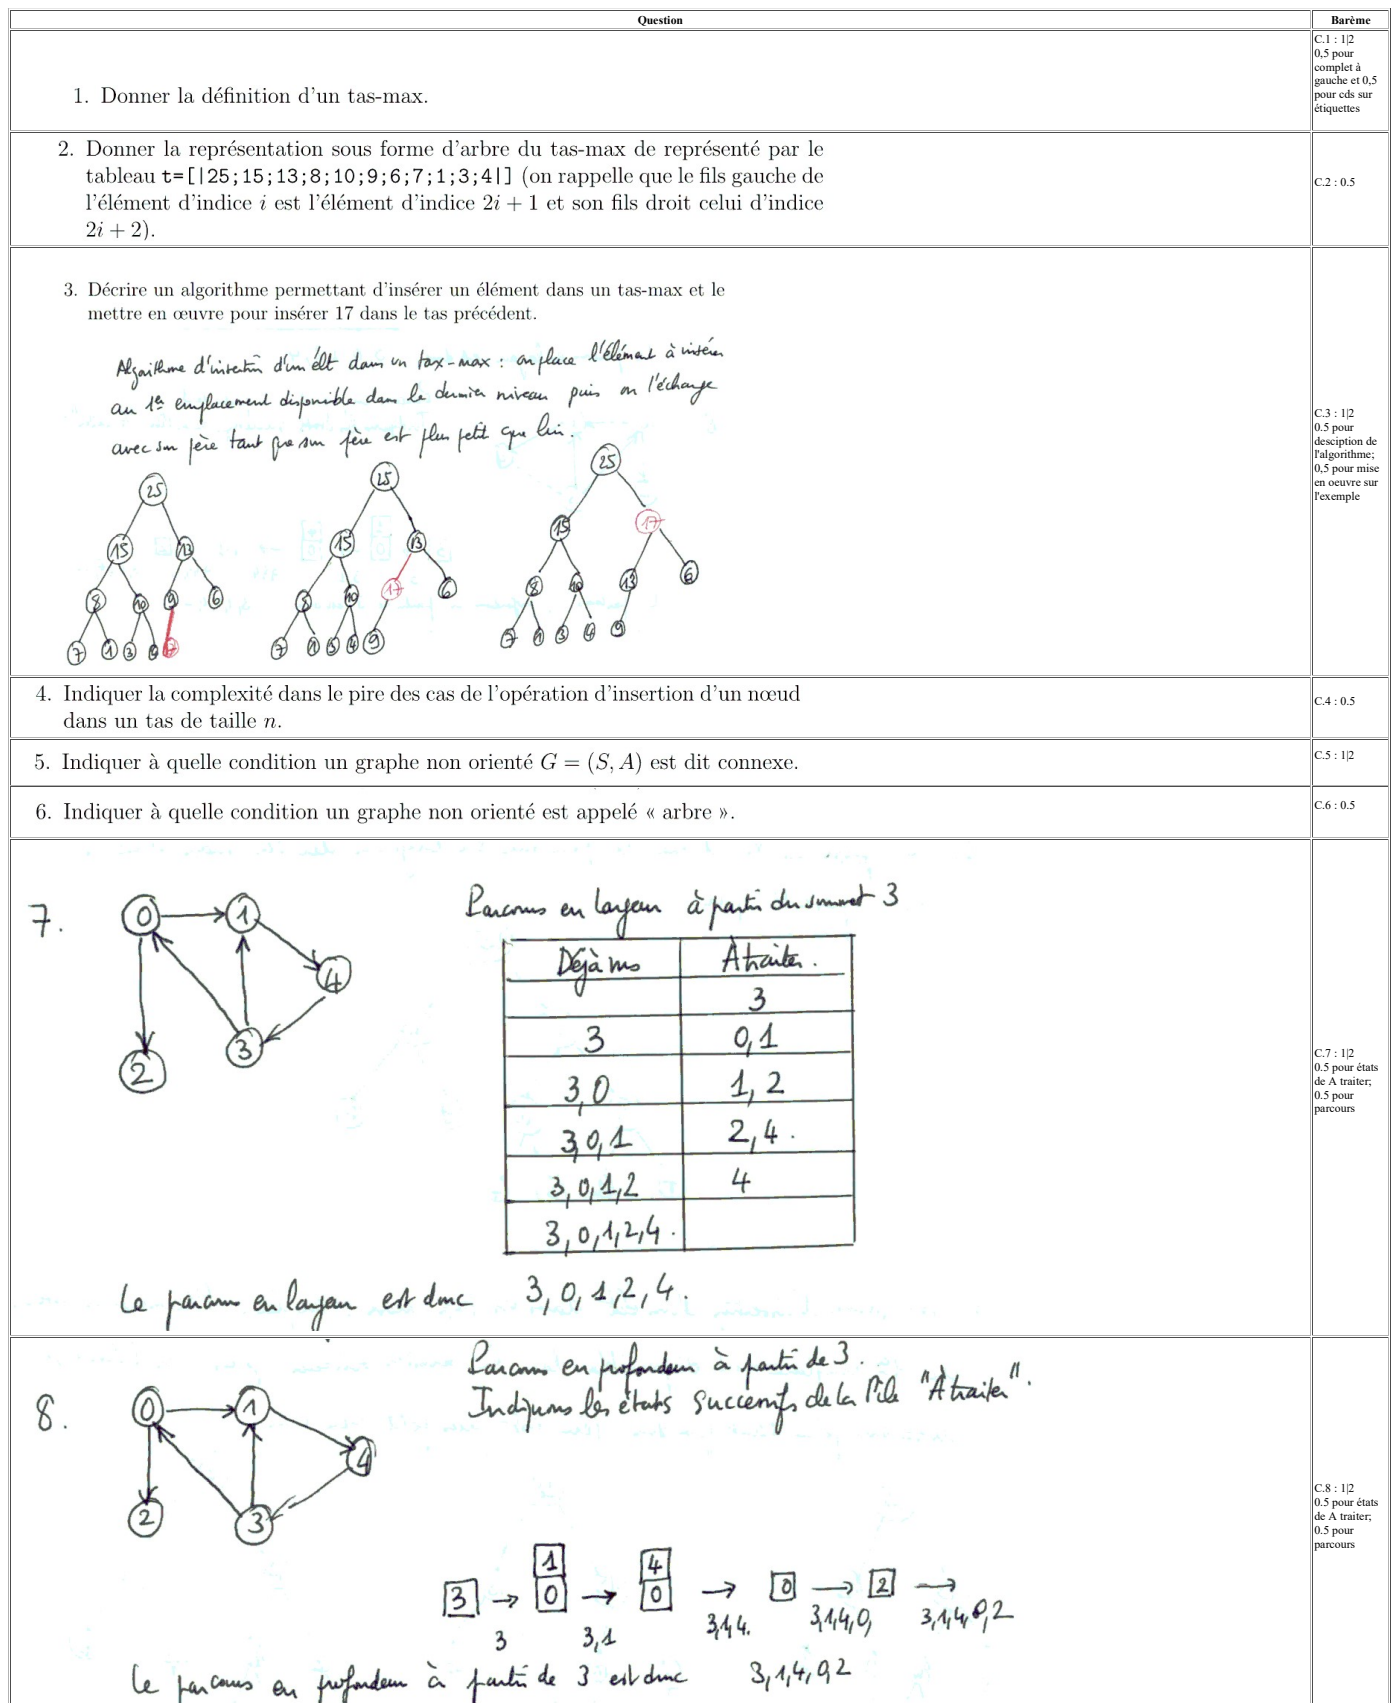 Question
Barème
1. Donner la définition d'un tas-max.
C.1 : 1|2
0,5 pour
complet à
gauche et 0,5
pour cds sur
étiquettes
2. Donner la représentation sous forme d'arbre du tas-max de représenté par le
tableau t=[|25;15;13;8;10;9;6;7;1;3;4|] (on rappelle que le fils gauche de
l'élément d'indice i est l'élément d'indice 2i + 1 et son fils droit celui d'indice
2i + 2).
C.2 : 0.5
3. Décrire un algorithme permettant d'insérer un élément dans un tas-max et le
mettre en œuvre pour insérer 17 dans le tas précédent.
Algorithme d'insertion d'un élt dans un tax-max : on place l'élément à insérer
au 1er emplacement disponible dans le dernier niveau puis on l'échange
avec son père tant que son père est plus petit que lui.
25
15 13
8 10 9 6
7 1 3 4 17
25
15 13
8 10 17 6
7 1 3 4 9
25
15 17
8 10 13 6
7 1 3 4 9
C.3 : 1|2
0.5 pour
desciption de
l'algorithme;
0,5 pour mise
en oeuvre sur
l'exemple
4. Indiquer la complexité dans le pire des cas de l'opération d'insertion d'un nœud
dans un tas de taille n.
C.4 : 0.5
5. Indiquer à quelle condition un graphe non orienté G = (S, A) est dit connexe.
C.5 : 1|2
6. Indiquer à quelle condition un graphe non orienté est appelé « arbre ».
C.6 : 0.5
7.
0 1
4
2 3
Parcours en largeur à partir du sommet 3
Déjà vus À traiter.
3
3 0,1
3,0 1, 2
3,0,1 2,4.
3,0,1,2 4
3,0,1,2,4.
Le parcours en largeur est donc 3, 0, 1, 2, 4.
C.7 : 1|2
0.5 pour états
de A traiter;
0.5 pour
parcours
8.
0 1
4
2 3
Parcours en profondeur à partir de 3.
Indiquons les états successifs de la Pile "À traiter".
1 4
3 → 0 → 0 → 0 → 2 →
3 3,1 3,1,4. 3,1,4,0, 3,1,4,0,2
Le parcours en profondeur à partir de 3 est donc 3,1,4,0,2
C.8 : 1|2
0.5 pour états
de A traiter;
0.5 pour
parcours